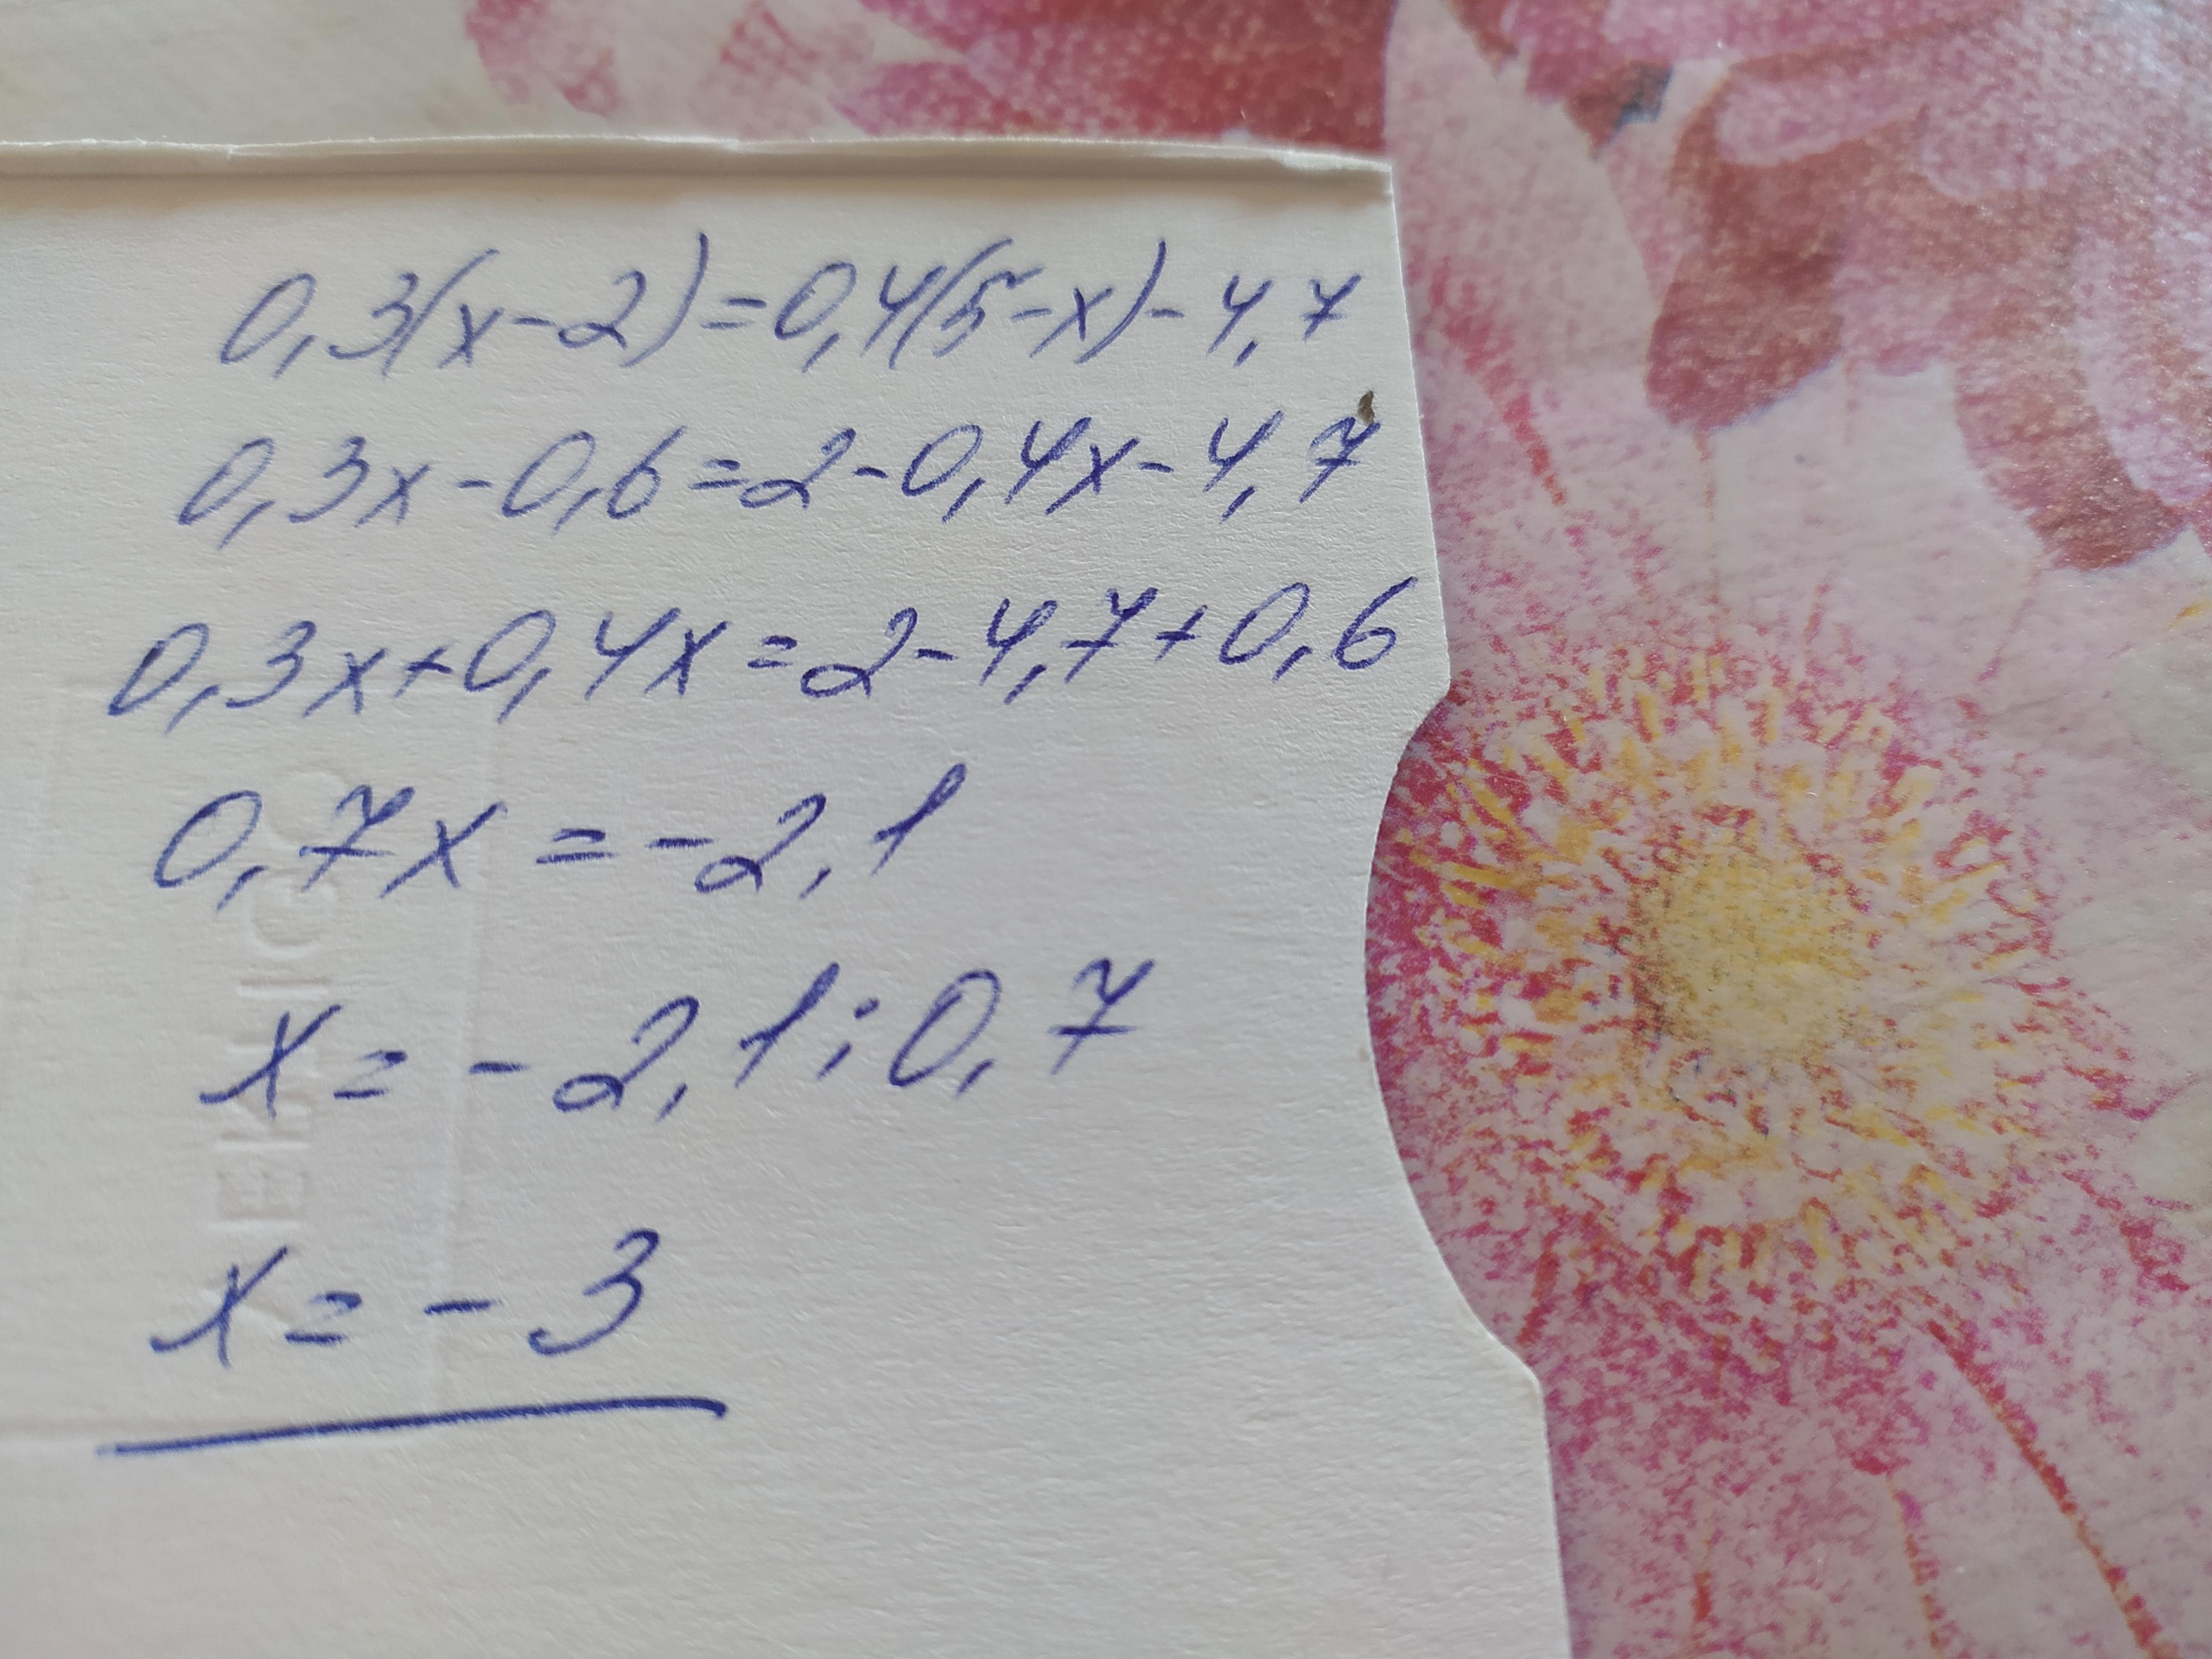 0,3(x-2)=0,4(5-x)-4,7
0,3x-0,6=2-0,4x-4,7
0,3x+0,4x=2-4,7+0,6
0,7x=-2,1
x=-2,1:0,7
x=-3